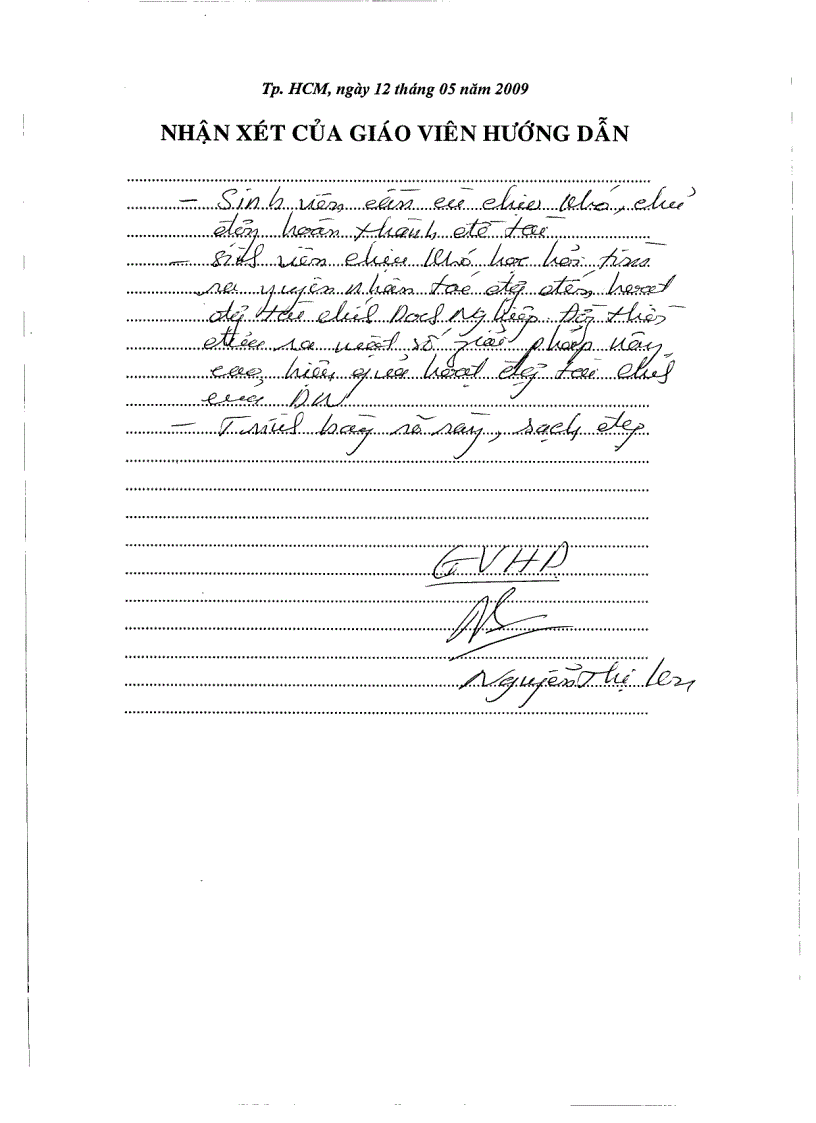 Tp. HCM, ngày 12 tháng 05 năm 2009
NHẬN XÉT CỦA GIÁO VIÊN HƯỚNG DẪN
- Sinh viên cần cù chịu khó, chủ
động hoàn thành đề tài
- Sinh viên chịu khó học hỏi tìm
ra nguyên nhân tác động đến hoạt
động tài chính Doanh Nghiệp. Đồng thời
đưa ra một số giải pháp nâng
cao hiệu quả hoạt động tài chính
của DN
- Trình bày rõ ràng, sạch đẹp
GVHD
Nguyễn Thị